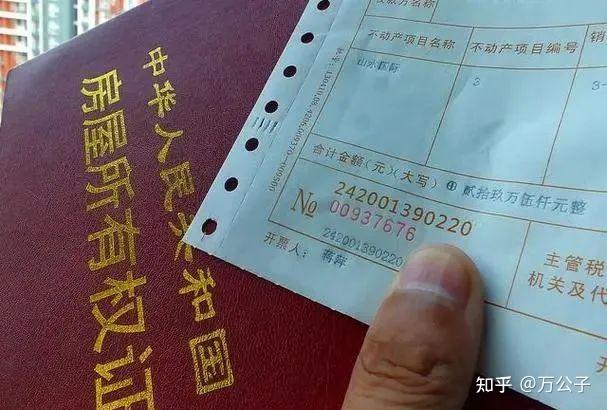 中华人民共和国
房屋所有权证
不动产项目名称
不动产项目编号
销
山水国际
3
3-
合计金额(元)(大写) ⊕ 贰拾玖万伍仟元整
242001390220
№ 00937676
242001390220
开票人:
主管税
机关及代
开
知乎 @万公子